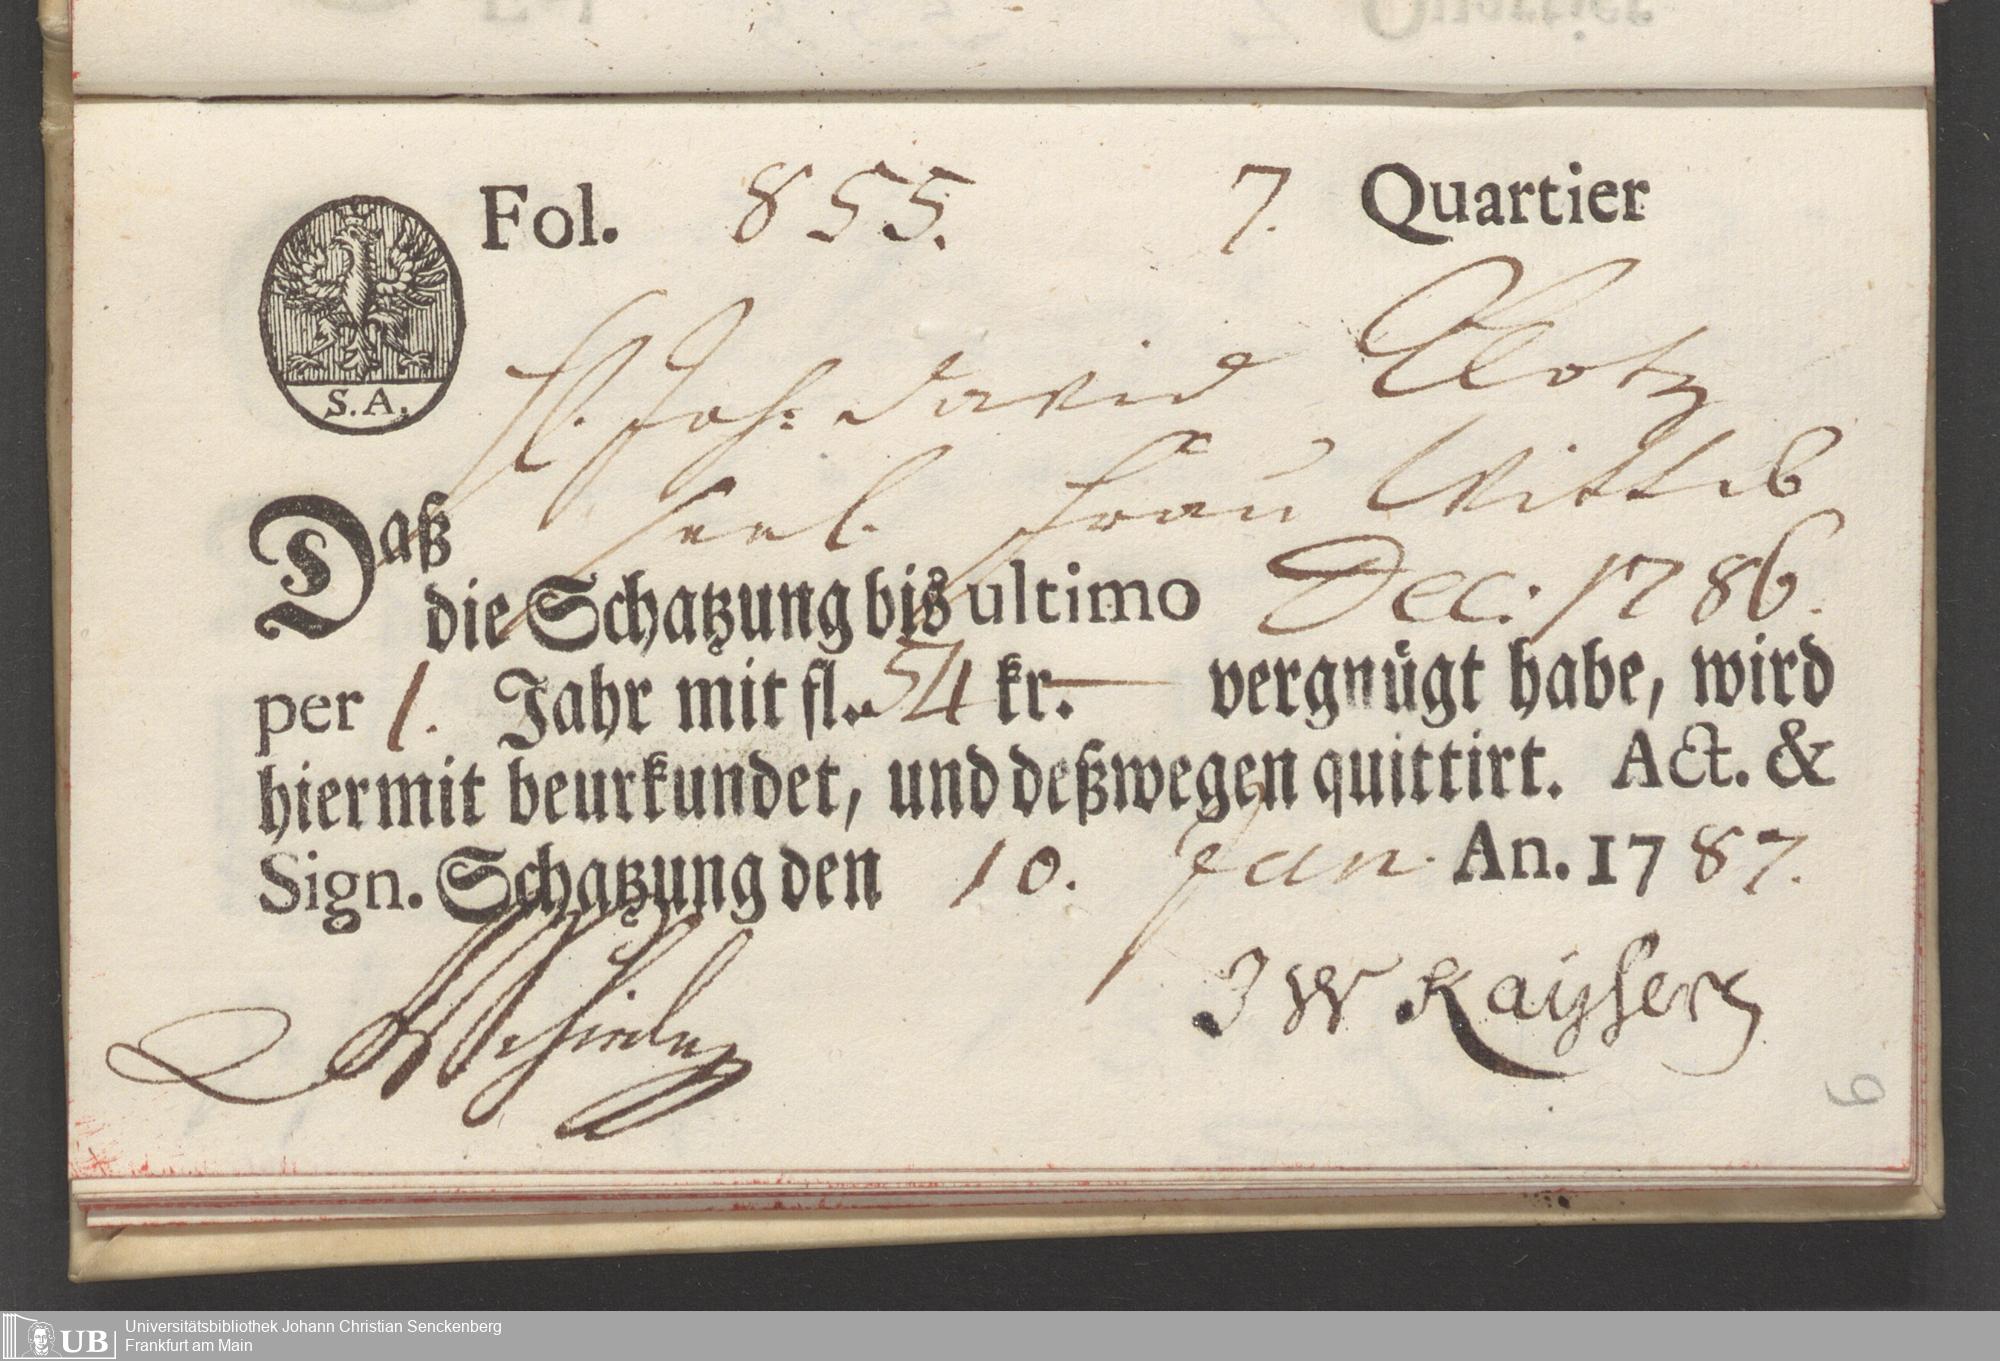 Fol. 855. 7. Quartier
S. A.
H. Joh: David Clotz
Daß seel. Frau Wittib
die Schatzung bis ultimo Dec: 1786.
per 1. Jahr mit fl. 54 kr. — vergnügt habe, wird
hiermit beurkundet, und deßwegen quittirt. Act. &
Sign. Schatzung den 10. Jan. An. 1787.
J W Kayser
6
UB Universitätsbibliothek Johann Christian Senckenberg
Frankfurt am Main